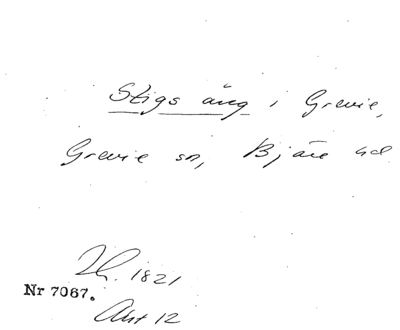 Stigs äng i Grevie,
Grevie sn, Bjäre hd
1821
Nr 7067.
Akt 12